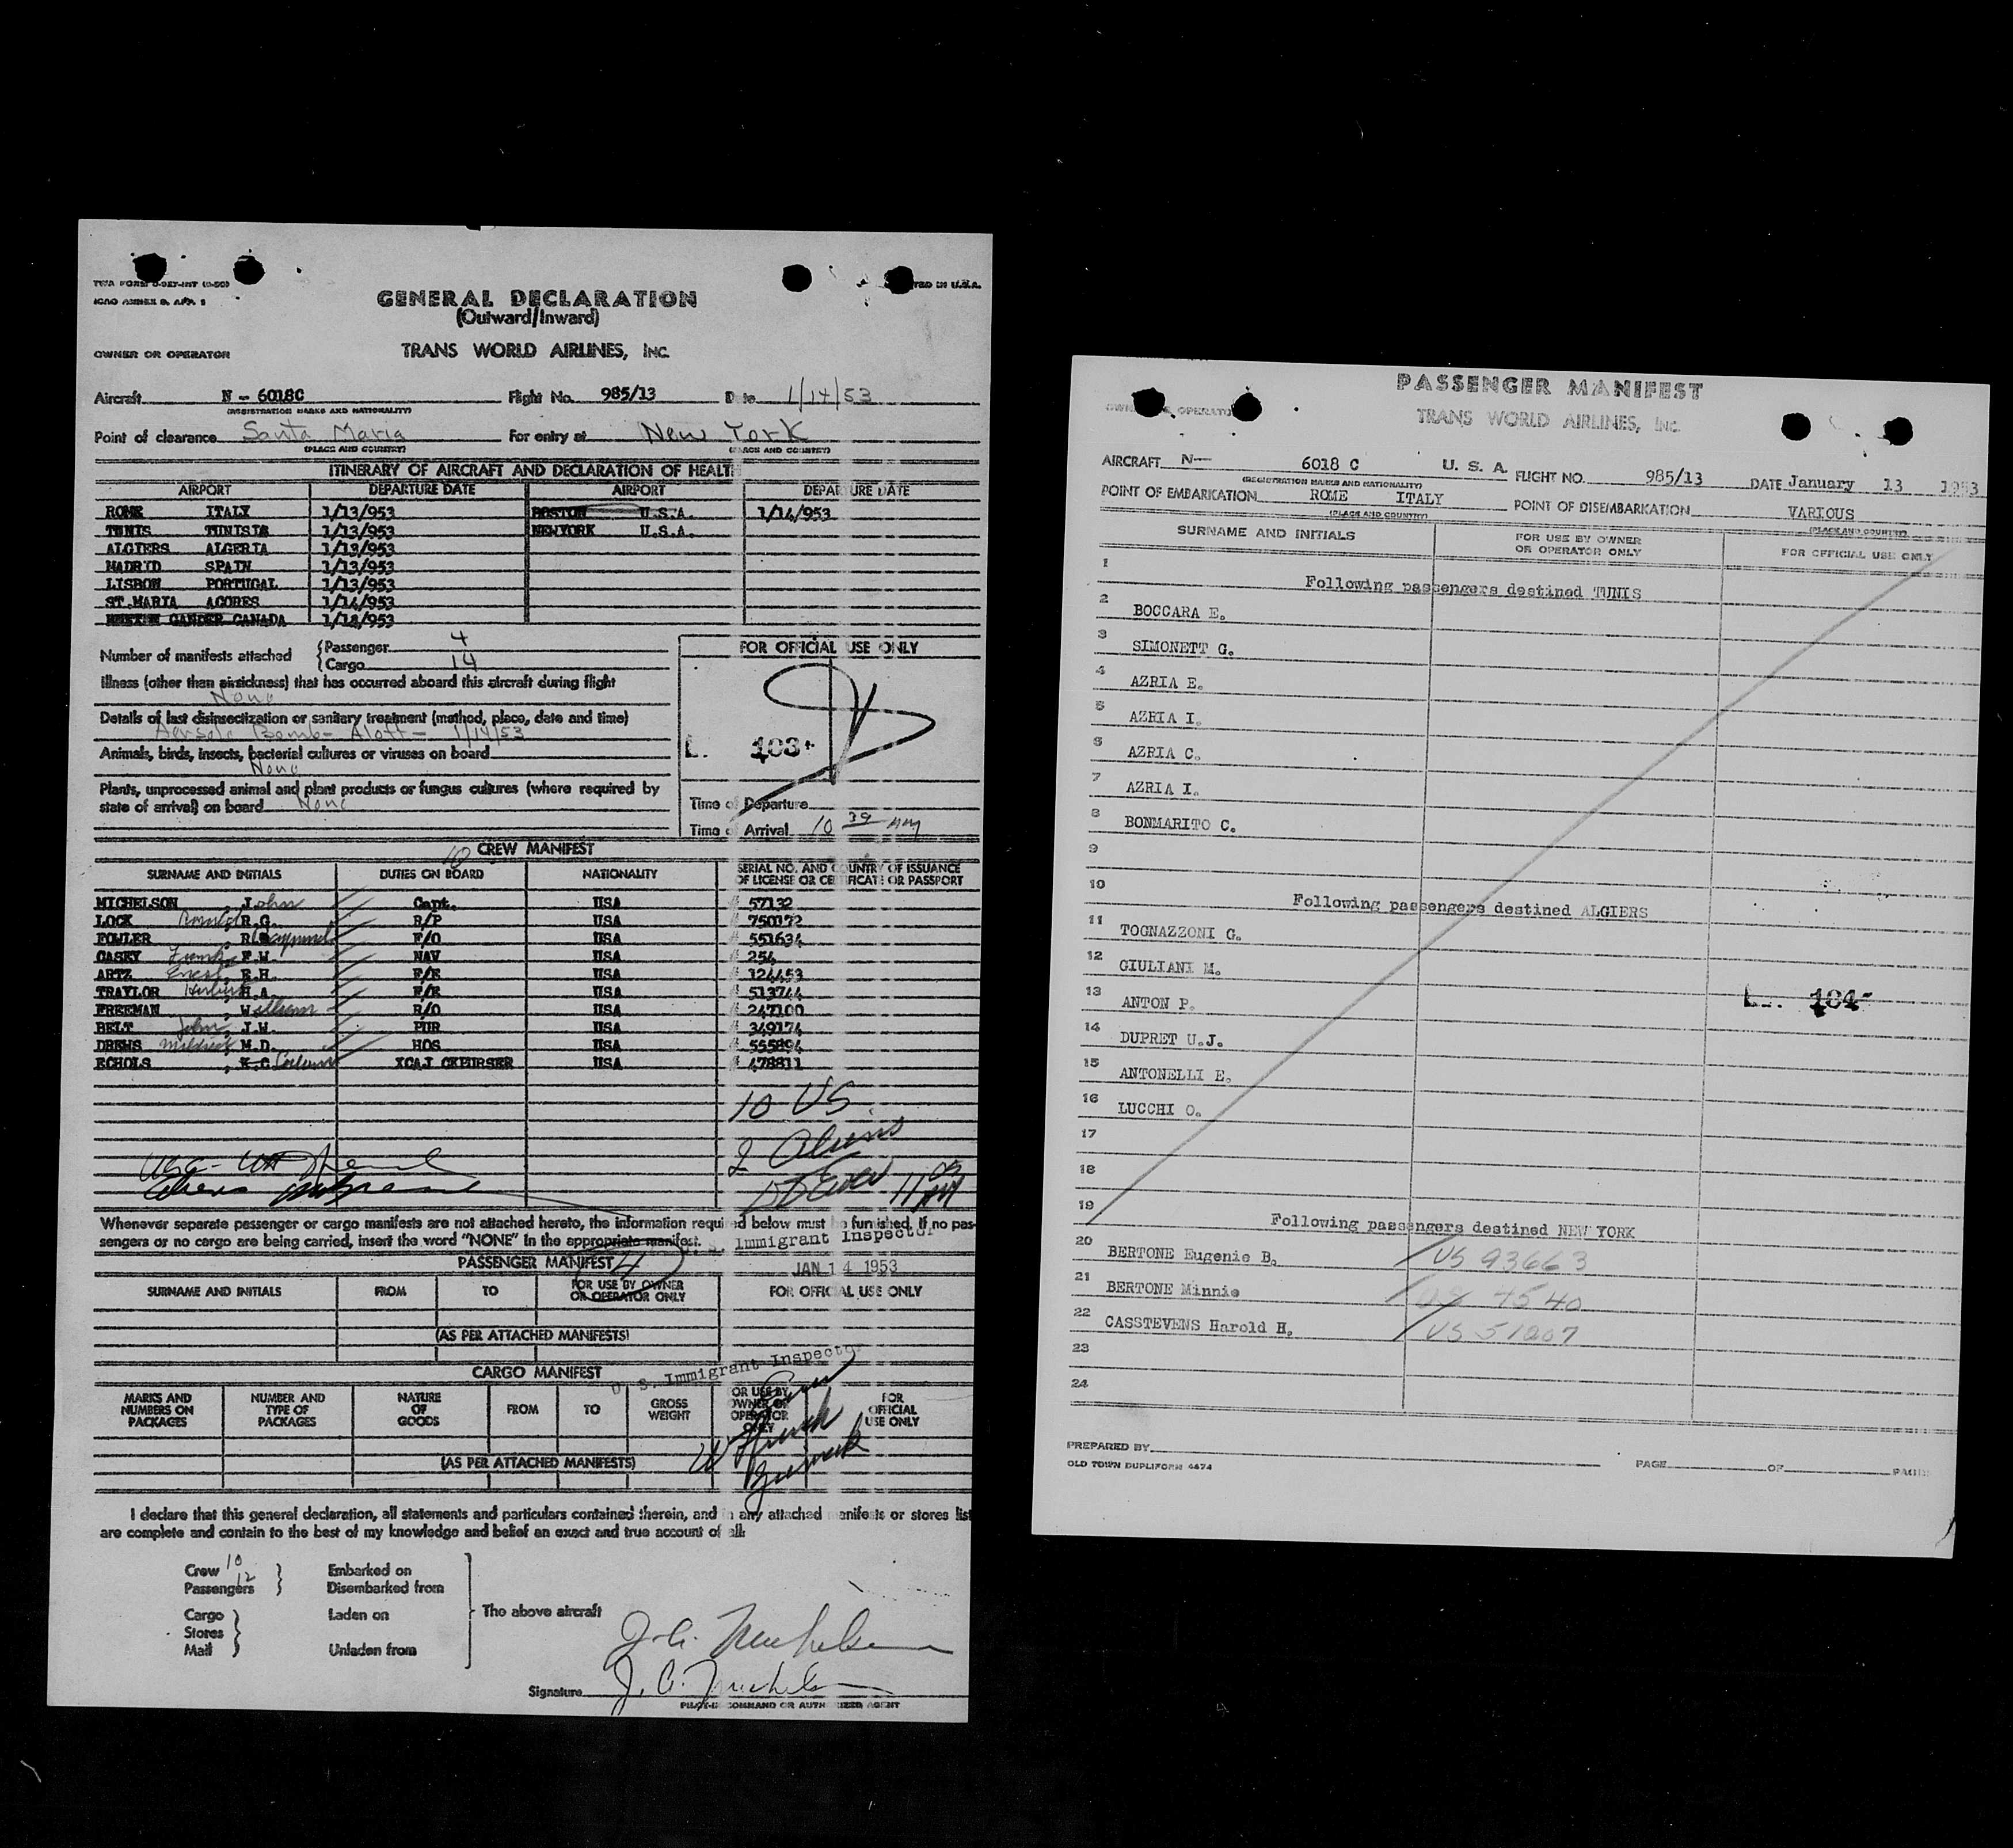 TWA FORM
ICAO ANNEX 9, APP. 1
GENERAL DECLARATION
(Outward/Inward)
OWNER OR OPERATOR TRANS WORLD AIRLINES, INC.
Aircraft N - 6018C Flight No. 985/13 Date 1/14/53
(REGISTRATION MARKS AND NATIONALITY)
Point of clearance Santa Maria For entry at New York
(PLACE AND COUNTRY) (PLACE AND COUNTRY)
ITINERARY OF AIRCRAFT AND DECLARATION OF HEALTH
AIRPORT DEPARTURE DATE AIRPORT DEPARTURE DATE
ROME ITALY 1/13/953 BOSTON U.S.A. 1/14/953
TUNIS TUNISIA 1/13/953 NEWYORK U.S.A.
ALGIERS ALGERIA 1/13/953
MADRID SPAIN 1/13/953
LISBON PORTUGAL 1/13/953
ST.MARIA ACORES 1/14/953
GANDER CANADA 1/14/953
Number of manifests attached { Passenger 4
{ Cargo 14
FOR OFFICIAL USE ONLY
Illness (other than airsickness) that has occurred aboard this aircraft during flight
None
Details of last disinsectization or sanitary treatment (method, place, date and time)
Aersole Bomb - Aloft - 1/14/53
L. 103
Animals, birds, insects, bacterial cultures or viruses on board
None
Plants, unprocessed animal and plant products or fungus cultures (where required by
state of arrival) on board None
Time of Departure
Time of Arrival 10 39 AM
10 CREW MANIFEST
SURNAME AND INITIALS DUTIES ON BOARD NATIONALITY SERIAL NO. AND COUNTRY OF ISSUANCE
OF LICENSE OR CERTIFICATE OR PASSPORT
MICHELSON , John Capt. USA # 57132
LOCK , R.G. R/P USA # 750172
FOWLER , Raymond F/O USA # 551634
CASEY Frank, F.W. NAV USA # 254
ARTZ , E.H. F/E USA # 124453
TRAYLOR Herbert, H.A. F/E USA # 513744
FREEMAN , William R/O USA # 247100
BELT John, J.W. PUR USA # 349174
DREWS Mildred, M.D. HOS USA # 555894
ECHOLS , USA # 478811
10 US
2 Aliens
11 05 AM
Whenever separate passenger or cargo manifests are not attached hereto, the information required below must be furnished. If no pas-
sengers or no cargo are being carried, insert the word "NONE" in the appropriate manifest.
U. S. Immigrant Inspector
PASSENGER MANIFEST 4
JAN 14 1953
SURNAME AND INITIALS FROM TO FOR USE BY OWNER OR OPERATOR ONLY FOR OFFICIAL USE ONLY
(AS PER ATTACHED MANIFESTS)
CARGO MANIFEST
U. S. Immigrant Inspector
MARKS AND NUMBERS ON PACKAGES NUMBER AND TYPE OF PACKAGES NATURE OF GOODS FROM TO GROSS WEIGHT FOR USE BY OWNER OR OPERATOR ONLY FOR OFFICIAL USE ONLY
(AS PER ATTACHED MANIFESTS)
I declare that this general declaration, all statements and particulars contained therein, and in any attached manifests or stores list
are complete and contain to the best of my knowledge and belief an exact and true account of all:
Crew 10 Embarked on
Passengers 12 Disembarked from
Cargo Laden on The above aircraft
Stores
Mail Unladen from
Signature
PILOT-IN COMMAND OR AUTHORIZED AGENT
PASSENGER MANIFEST
OWNER OR OPERATOR TRANS WORLD AIRLINES, INC.
AIRCRAFT N- 6018 C U. S. A. FLIGHT NO. 985/13 DATE January 13 1953
(REGISTRATION MARKS AND NATIONALITY)
POINT OF EMBARKATION ROME ITALY POINT OF DISEMBARKATION VARIOUS
(PLACE AND COUNTRY) (PLACE AND COUNTRY)
SURNAME AND INITIALS FOR USE BY OWNER OR OPERATOR ONLY FOR OFFICIAL USE ONLY
1 Following passengers destined TUNIS
2 BOCCARA E.
3 SIMONETT G.
4 AZRIA E.
5 AZRIA I.
6 AZRIA C.
7 AZRIA I.
8 BONMARITO C.
9
10 Following passengers destined ALGIERS
11 TOGNAZZONI G.
12 GIULIANI M.
13 ANTON P. L. 104
14 DUPRET U.J.
15 ANTONELLI E.
16 LUCCHI O.
17
18
19 Following passengers destined NEW YORK
20 BERTONE Eugenie B. US 93663
21 BERTONE Minnie US 7540
22 CASSTEVENS Harold H. US 51007
23
24
PREPARED BY
OLD TOWN DUPLIFORM 4674 PAGE OF PAGES